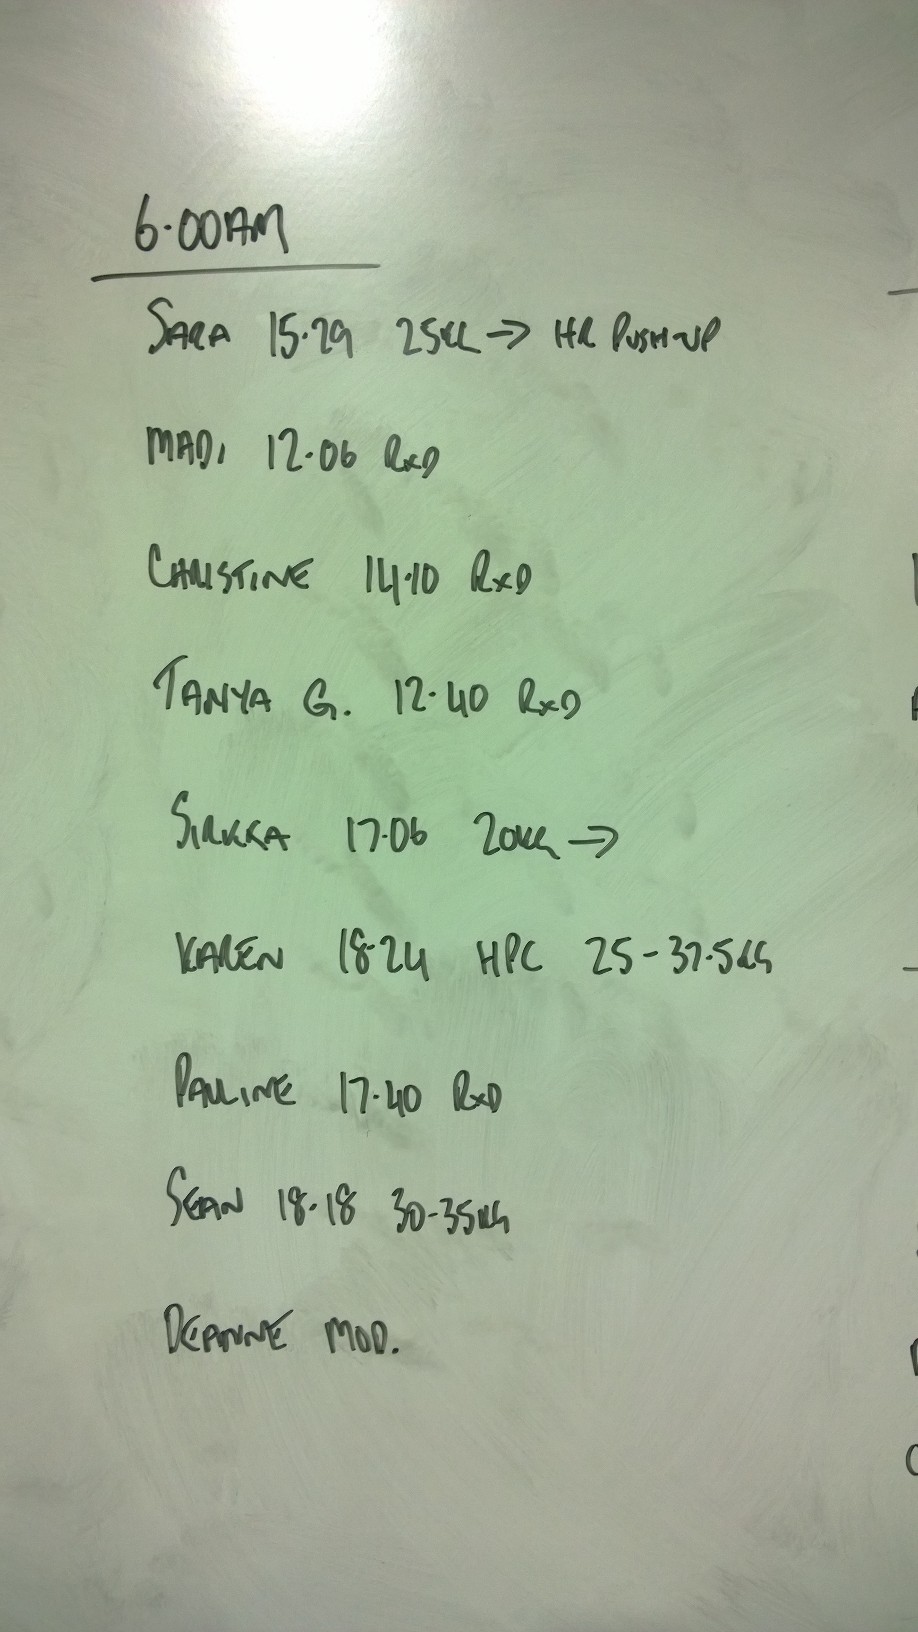 6.00AM
SARA 15.29 25KG → HR PUSH-UP
MADI 12.06 RxD
CHRISTINE 14.10 RxD
TANYA G. 12.40 RxD
SIRKKA 17.06 20KG →
KAREN 18.24 HPC 25-37.5KG
PAULINE 17.40 RxD
SEAN 18.18 30-35KG
DEANNE MOD.